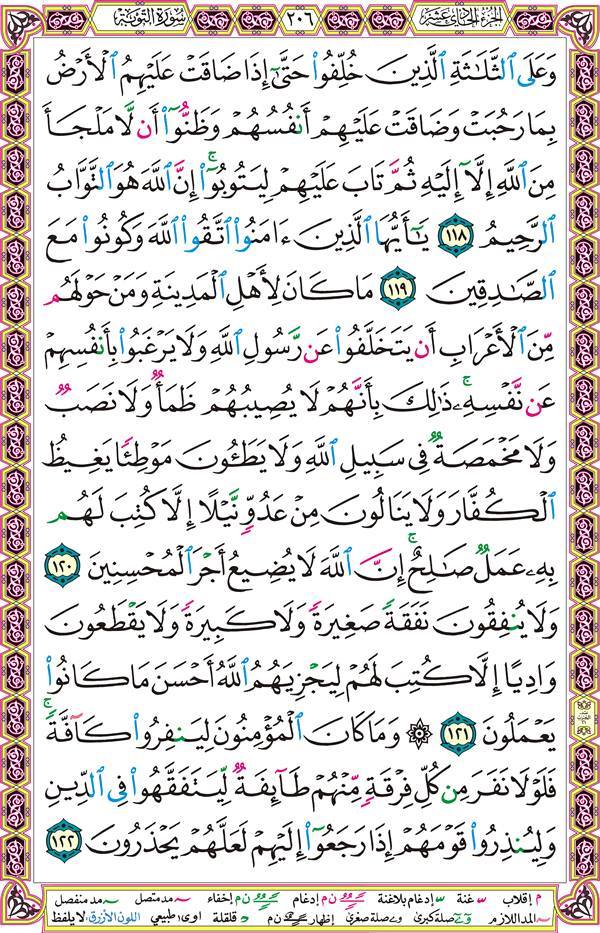 الجزء الحادي عشر ٢٠٦ سورة التوبة
وَعَلَى ٱلثَّلَٰثَةِ ٱلَّذِينَ خُلِّفُوا۟ حَتَّىٰٓ إِذَا ضَاقَتْ عَلَيْهِمُ ٱلْأَرْضُ
بِمَا رَحُبَتْ وَضَاقَتْ عَلَيْهِمْ أَنفُسُهُمْ وَظَنُّوٓا۟ أَن لَّا مَلْجَأَ
مِنَ ٱللَّهِ إِلَّآ إِلَيْهِ ثُمَّ تَابَ عَلَيْهِمْ لِيَتُوبُوٓا۟ ۚ إِنَّ ٱللَّهَ هُوَ ٱلتَّوَّابُ
ٱلرَّحِيمُ ١١٨ يَٰٓأَيُّهَا ٱلَّذِينَ ءَامَنُوا۟ ٱتَّقُوا۟ ٱللَّهَ وَكُونُوا۟ مَعَ
ٱلصَّٰدِقِينَ ١١٩ مَا كَانَ لِأَهْلِ ٱلْمَدِينَةِ وَمَنْ حَوْلَهُم
مِّنَ ٱلْأَعْرَابِ أَن يَتَخَلَّفُوا۟ عَن رَّسُولِ ٱللَّهِ وَلَا يَرْغَبُوا۟ بِأَنفُسِهِمْ
عَن نَّفْسِهِۦ ۚ ذَٰلِكَ بِأَنَّهُمْ لَا يُصِيبُهُمْ ظَمَأٌ وَلَا نَصَبٌ
وَلَا مَخْمَصَةٌ فِى سَبِيلِ ٱللَّهِ وَلَا يَطَـُٔونَ مَوْطِئًا يَغِيظُ
ٱلْكُفَّارَ وَلَا يَنَالُونَ مِنْ عَدُوٍّ نَّيْلًا إِلَّا كُتِبَ لَهُم
بِهِۦ عَمَلٌ صَٰلِحٌ ۚ إِنَّ ٱللَّهَ لَا يُضِيعُ أَجْرَ ٱلْمُحْسِنِينَ ١٢٠
وَلَا يُنفِقُونَ نَفَقَةً صَغِيرَةً وَلَا كَبِيرَةً وَلَا يَقْطَعُونَ
وَادِيًا إِلَّا كُتِبَ لَهُمْ لِيَجْزِيَهُمُ ٱللَّهُ أَحْسَنَ مَا كَانُوا۟
يَعْمَلُونَ ١٢١ ۞ وَمَا كَانَ ٱلْمُؤْمِنُونَ لِيَنفِرُوا۟ كَآفَّةً ۚ
فَلَوْلَا نَفَرَ مِن كُلِّ فِرْقَةٍ مِّنْهُمْ طَآئِفَةٌ لِّيَتَفَقَّهُوا۟ فِى ٱلدِّينِ
وَلِيُنذِرُوا۟ قَوْمَهُمْ إِذَا رَجَعُوٓا۟ إِلَيْهِمْ لَعَلَّهُمْ يَحْذَرُونَ ١٢٢
م إقلاب غنة إدغام بلاغنة ن م إدغام ن م إخفاء مد متصل مد منفصل
المد اللازم صلة كبرى صلة صغرى إظهار ن م قلقلة اوى طبيعي اللون الأزرق لا يلفظ